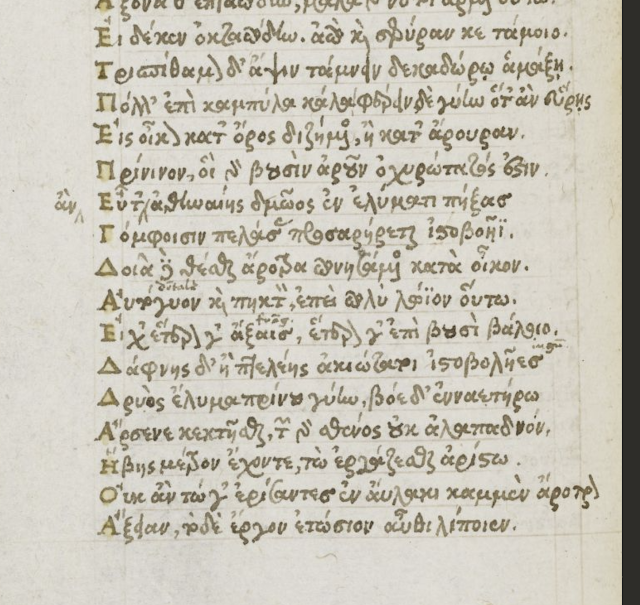 Ἄξονά θ' ἑπταπόδην, μάλα γάρ νύ τοι ἄρμενον οὕτω.
Εἰ δέ κεν ὀκταπόδην. ἀπὸ καὶ σφύραν κε τάμοιο.
Τρισπίθαμον δ' ἄψιν τάμνειν δεκαδώρῳ ἁμάξῃ.
Πόλλ' ἐπὶ καμπύλα κάλα, φέρειν δὲ γύην ὅτ' ἂν εὕρῃς
Εἰς οἶκον κατ' ὄρος διζήμενος, ἢ κατ' ἄρουραν.
Πρίνινον, ὃς γὰρ βουσὶν ἀροῦν ὀχυρώτατός ἐστιν.
ἂν Εὖτ' ἀθηναίης δμῶος ἐν ἐλύματι πήξας
Γόμφοισιν πελάσας προσαρήρεται ἱστοβοῆϊ.
Δοιὰ δὲ θέσθαι ἄροτρα πονησάμενος κατὰ οἶκον.
Αὐτόγυον καὶ πηκτὸν, ἐπεὶ πολὺ λώϊον οὕτω.
Εἴ χ' ἕτερον γ' ἄξαις, ἕτερον γ' ἐπὶ βουσὶ βάλοιο.
Δάφνης δ' ἢ πτελέης ἀκιώτατοι ἱστοβοῆες
Δρυὸς ἔλυμα πρίνου γύην, βόε δ' ἐνναετήρω
Ἄρσενε κεκτῆσθαι, τῶν γὰρ σθένος οὐκ ἀλαπαδνόν,
Ἥβης μέτρον ἔχοντε, τὼ ἐργάζεσθαι ἀρίστω.
Οὐκ ἂν τώ γ' ἐρίσαντες ἐν αὔλακι καμμὲν ἄροτρον
Ἄξειαν, τὸ δὲ ἔργον ἐτώσιον αὖθι λίποιεν.